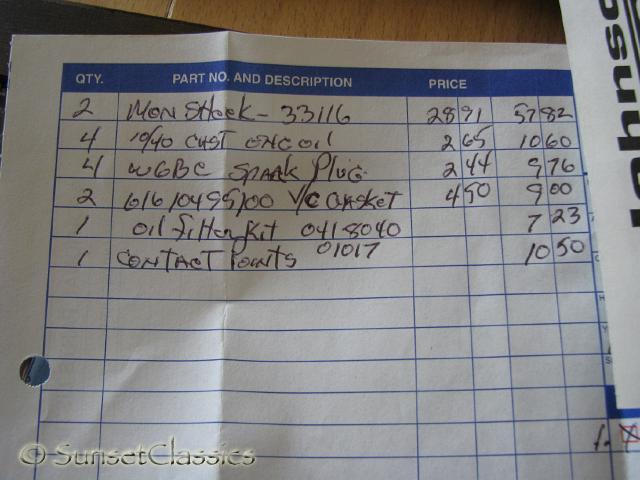 Johnso
QTY. PART NO. AND DESCRIPTION PRICE
2 MON SHOCK - 33116 28 91 57 82
4 10/40 CAST ENG OIL 2 65 10 60
4 W6BC SPARK PLUG 2 44 9 76
2 616 10495100 V/C GASKET 4 50 9 00
1 Oil Filter Kit 0418040 7 23
1 CONTACT POINTS 01017 10 50
© SunsetClassics